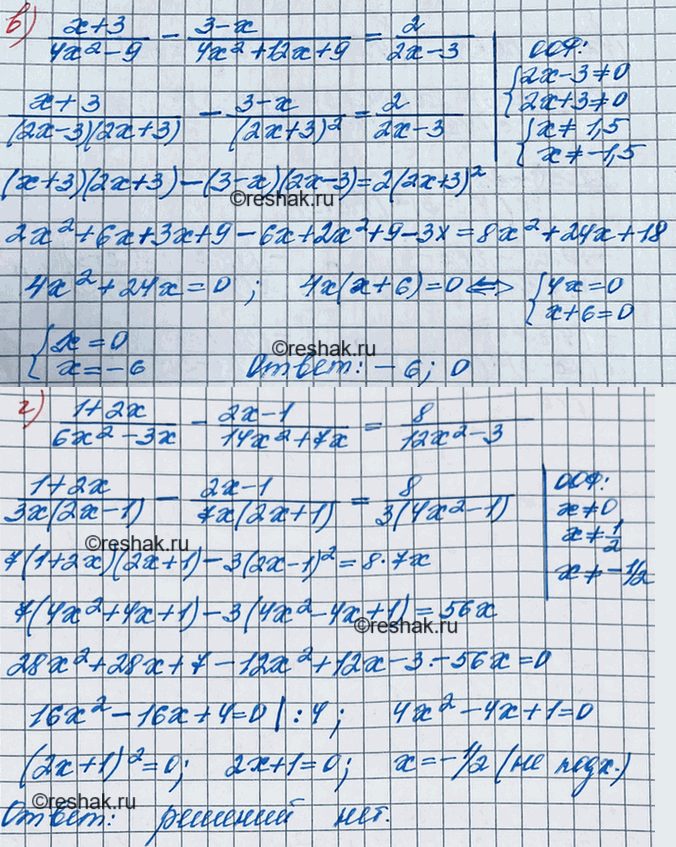 в) (x+3)/(4x²-9) - (3-x)/(4x²+12x+9) = 2/(2x-3) | ООФ:
{2x-3≠0
{2x+3≠0
(x+3)/((2x-3)(2x+3)) - (3-x)/((2x+3)²) = 2/(2x-3)
{x≠1,5
{x≠-1,5
(x+3)(2x+3)-(3-x)(2x-3)=2(2x+3)²
©reshak.ru
2x²+6x+3x+9-6x+2x²+9-3x=8x²+24x+18
4x²+24x=0 ; 4x(x+6)=0 <=> {4x=0
{x+6=0
{x=0
{x=-6
Ответ: -6; 0
©reshak.ru
г) (1+2x)/(6x²-3x) - (2x-1)/(14x²+7x) = 8/(12x²-3)
(1+2x)/(3x(2x-1)) - (2x-1)/(7x(2x+1)) = 8/(3(4x²-1)) | ООФ:
x≠0
x≠1/2
x≠-1/2
©reshak.ru
7(1+2x)(2x+1)-3(2x-1)²=8·7x
7(4x²+4x+1)-3(4x²-4x+1)=56x
©reshak.ru
28x²+28x+7-12x²+12x-3-56x=0
16x²-16x+4=0 |:4; 4x²-4x+1=0
(2x+1)²=0; 2x+1=0; x=-1/2 (не подх.)
©reshak.ru
Ответ: решений нет.